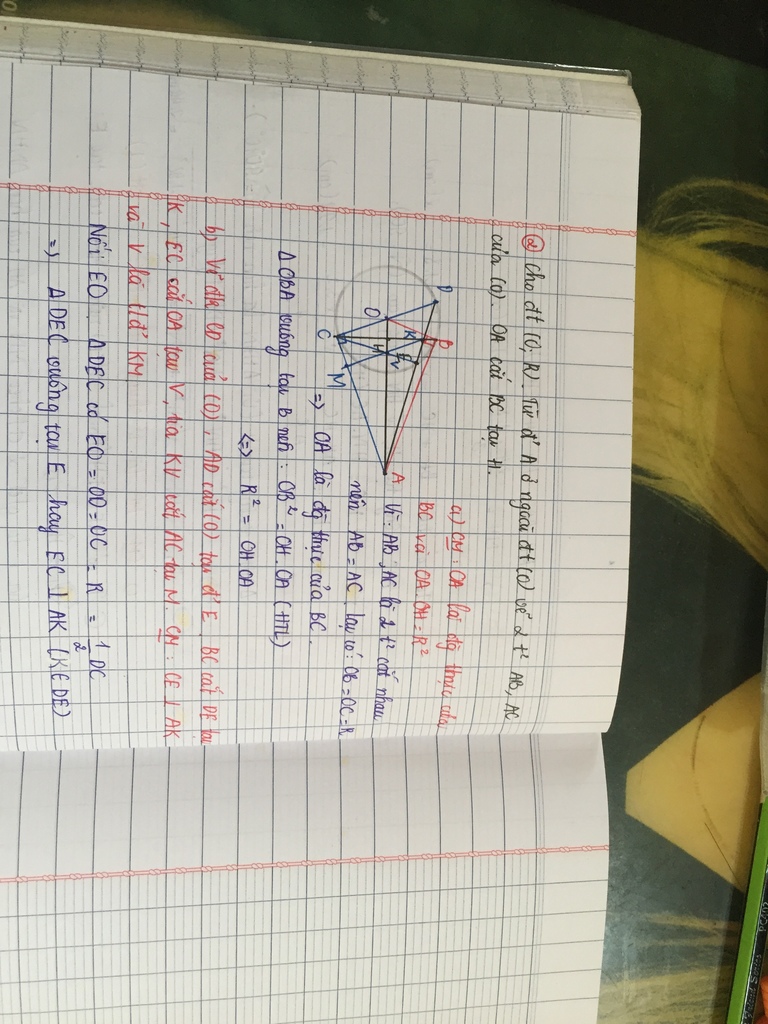 ② Cho đt (O; R). Từ đ' A ở ngoài đt (O) vẽ 2 t² AB, AC
của (O). OA cắt BC tại H.
a) CM: OA là đg trực của
BC và OA.OH = R²
Vì: AB, AC là 2 t² cắt nhau
nên AB = AC. Lại có: OB = OC = R
=> OA là đg trực của BC.
D
B
K
E
O
H
V
A
C
M
Δ OBA vuông tại B nên: OB² = OH.OA (HTL)
<=> R² = OH.OA
b) Vẽ đk CD của (O), AD cắt (O) tại đ' E. BC cắt DE tại
K, EC cắt OA tại V, tia KV cắt AC tại M. CM: CE ⊥ AK
và V là t/đ' KM
Nối EO. Δ DEC có EO = OD = OC = R = 1/2 DC
=> Δ DEC vuông tại E hay EC ⊥ AK (K ∈ DE)